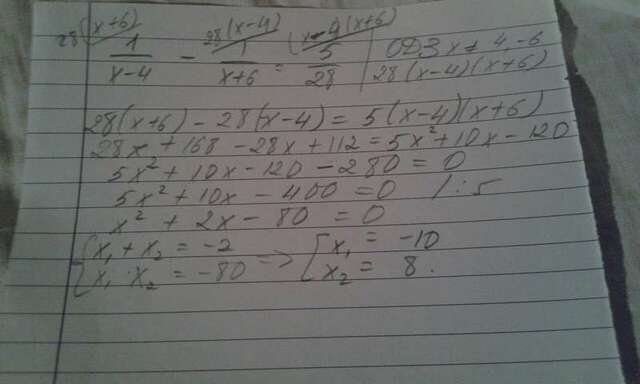 28(x+6) 28(x-4) (x-4)(x+6)
1/(x-4) - 1/(x+6) = 5/28 | ОДЗ x≠ 4, -6
28(x-4)(x+6)
28(x+6) - 28(x-4) = 5(x-4)(x+6)
28x + 168 - 28x + 112 = 5x² + 10x - 120
5x² + 10x - 120 - 280 = 0
5x² + 10x - 400 = 0 /:5
x² + 2x - 80 = 0
{x₁ + x₂ = -2 => [x₁ = -10
{x₁ · x₂ = -80 [x₂ = 8.